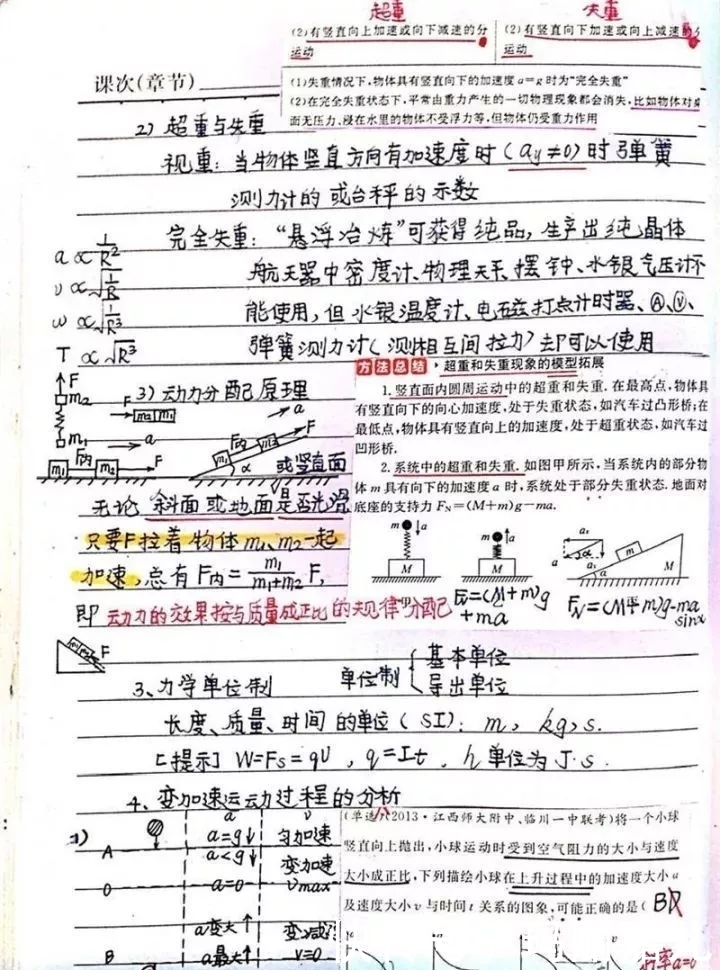 超重
失重
(2)有竖直向上加速或向下减速的分运动
(2)有竖直向下加速或向上减速的分运动
课次(章节)
(1)失重情况下,物体具有竖直向下的加速度a=g时为“完全失重”
(2)在完全失重状态下,平常由重力产生的一切物理现象都会消失,比如物体对桌
面无压力、浸在水里的物体不受浮力等,但物体仍受重力作用
2) 超重与失重
视重: 当物体竖直方向有加速度时(ay≠0)时弹簧
测力计的或台秤的示数
完全失重: “悬浮冶炼”可获得纯品, 生产出纯晶体
航天器中密度计、物理天平、摆钟、水银气压计不
能使用, 但水银温度计、电磁打点计时器、Ⓐ、Ⓥ、
弹簧测力计(测相互间拉力)却可以使用
a∝1/R²
v∝√(1/R)
ω∝√(1/R³)
T∝√R³
方法总结 · 超重和失重现象的模型拓展
1.竖直面内圆周运动中的超重和失重.在最高点,物体具
有竖直向下的向心加速度,处于失重状态,如汽车过凸形桥;在
最低点,物体具有竖直向上的加速度,处于超重状态,如汽车过
凹形桥.
2.系统中的超重和失重.如图甲所示,当系统内的部分物
体m具有向下的加速度a时,系统处于部分失重状态.地面对
底座的支持力FN=(M+m)g-ma.
3) 动力分配原理
F
m2
m1
F
m2 m1
a
a
F内
m1 m2
F
F
F内
m1
α
或竖直面
无论 斜面或地面是否光滑
只要F拉着物体m1、m2一起
加速, 总有F内=m1/(m1+m2) F,
即 动力的效果按与质量成正比的规律分配
m a
M
m a
M
a m M
α
甲
FN=(M+m)g
+ma
FN=(M+m)g-ma
sinα
F
3、力学单位制
单位制 { 基本单位
导出单位
长度、质量、时间的单位(SI): m, kg, s.
[提示] W=Fs=qU, q=It, h单位为J·s.
4、变加速运动过程的分析
a v
A a=g↓ 匀加速
a<g↓ 变加速
O a=0 vmax
a变大↑ 变减速
B a最大↑ v=0
(单选)(2013·江西师大附中、临川一中联考)将一个小球
竖直向上抛出,小球运动时受到空气阻力的大小与速度
大小成正比,下列描绘小球在上升过程中的加速度大小a
及速度大小v与时间t关系的图象,可能正确的是(
a=0